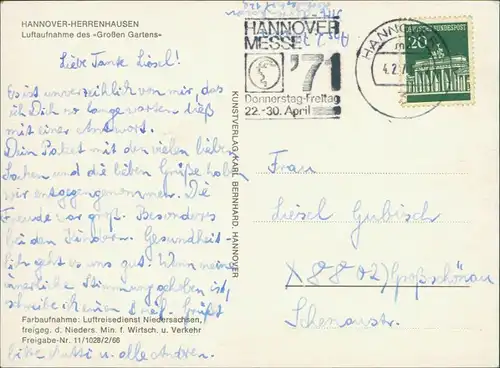 HANNOVER-HERRENHAUSEN
Luftaufnahme des «Großen Gartens»
Liebe Tante Liesel!
Es ist unverzeihlich von mir, das
ich Dich so lange warten ließ
mit einer Antwort.
Dein Paket mit den vielen lieben
Sachen und die lieben Grüße haben
wir entgegengenommen. Die
Freude war groß. Besonders
bei den Kindern. Gesundheit-
lich geht es uns gut. Wenn meine
innerliche Stimmung gehoben ist,
schreibe ich einen Brief. Grüßt
bitte Mutti u. alle anderen.
Farbaufnahme: Luftreisedienst Niedersachsen,
freigeg. d. Nieders. Min. f. Wirtsch. u. Verkehr
Freigabe-Nr. 11/1028/2/66
KUNSTVERLAG KARL BERNHARD, HANNOVER
HANNOVER
MESSE
'71
Donnerstag-Freitag
22.-30. April
HANNO
4.2.7
20
Frau
Liesel Gubisch
X 8802) Großschönau